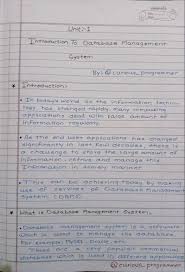 Unit:-1
Introduction To Database Management
System
By:- @curious_programmer
* Introduction:
• In today's world as the information techno-
logy has changed rapidly, many computing
applications deal with large amount of
information regularly.
• As the end user applications has changed
significantly in last few decades, there is
a challenge to store the large amount of
information, retrive and manage this
information in very less time.
• This can be achieving today by making
use of services of Database Management
System (DBMS)
* What is Database Management System:
• Database management system is a software
which is used to manage the database.
For example: MySQL, Oracle, etc.
are a very popular commercial
database which is used in different applications
@curious_programmer